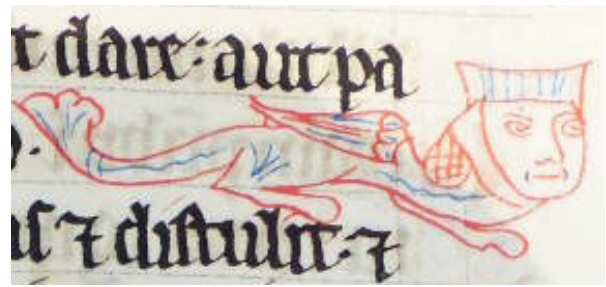 t dare: aut pa
⁊ diſtulit. ⁊